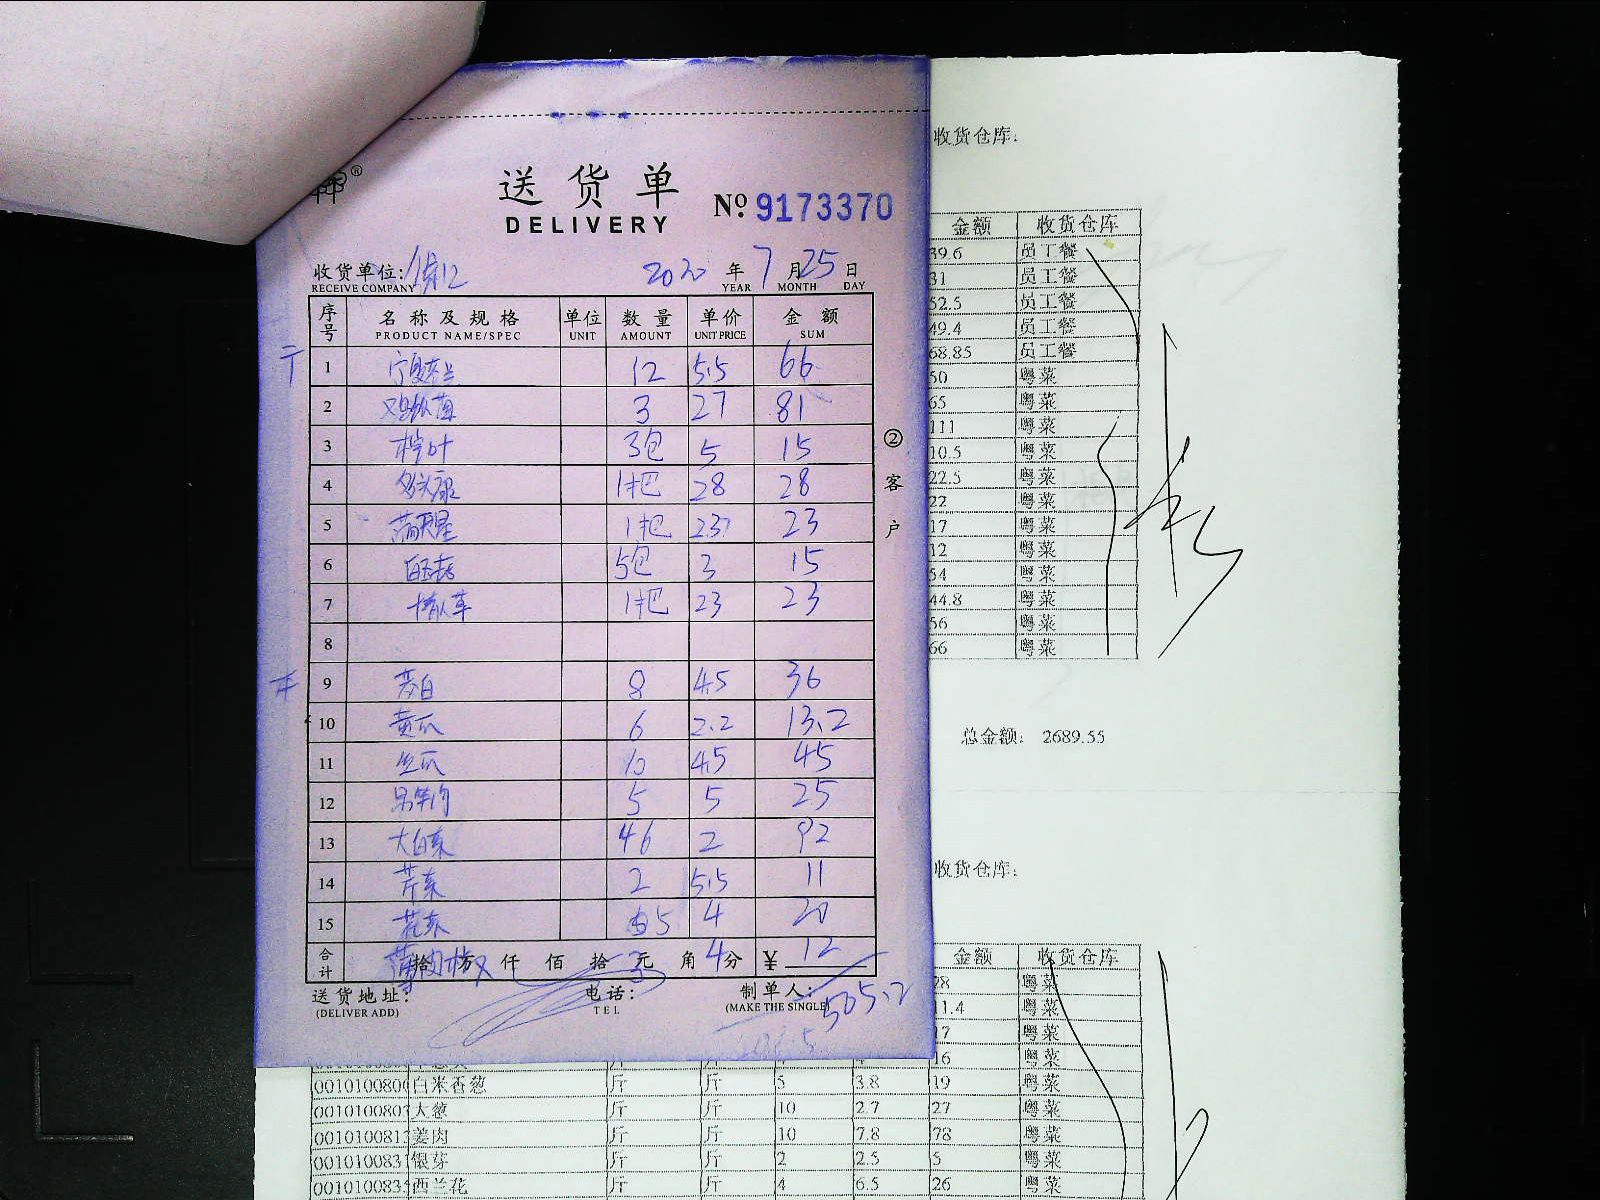 送货单
DELIVERY
№ 9173370
收货单位:
RECEIVE COMPANY
2020 年 7 月 25 日
YEAR MONTH DAY
序号 名称及规格 单位 数量 单价 金额
PRODUCT NAME/SPEC UNIT AMOUNT UNIT PRICE SUM
1 宁夏菜兰 12 5.5 66
2 3 27 81
3 3包 5 15
4 1把 28 28
5 满天星 1把 23 23
6 5包 3 15
7 1把 23 23
8
9 茭白 8 4.5 36
10 黄瓜 6 2.2 13.2
11 丝瓜 10 4.5 45
12 5 5 25
13 大白菜 46 2 92
14 芹菜 2 5.5 11
15 花菜 5 4 20
合计 拾 万 仟 佰 拾 元 角 分 ¥
3 4 12
送货地址:
(DELIVER ADD)
电话:
TEL
制单人:
(MAKE THE SINGLE)
505.2
②客户
收货仓库:
金额 收货仓库
39.6 员工餐
31 员工餐
52.5 员工餐
49.4 员工餐
68.85 员工餐
50 粤菜
65 粤菜
111 粤菜
10.5 粤菜
22.5 粤菜
22 粤菜
17 粤菜
12 粤菜
54 粤菜
44.8 粤菜
56 粤菜
66 粤菜
总金额: 2689.55
收货仓库:
金额 收货仓库
28 粤菜
11.4 粤菜
17 粤菜
16 粤菜
0010100800 白米香葱 斤 斤 5 3.8 19 粤菜
001010080 大葱 斤 斤 10 2.7 27 粤菜
001010081 姜肉 斤 斤 10 7.8 78 粤菜
001010083 银芽 斤 斤 2 2.5 5 粤菜
001010083 西兰花 斤 斤 4 6.5 26 粤菜